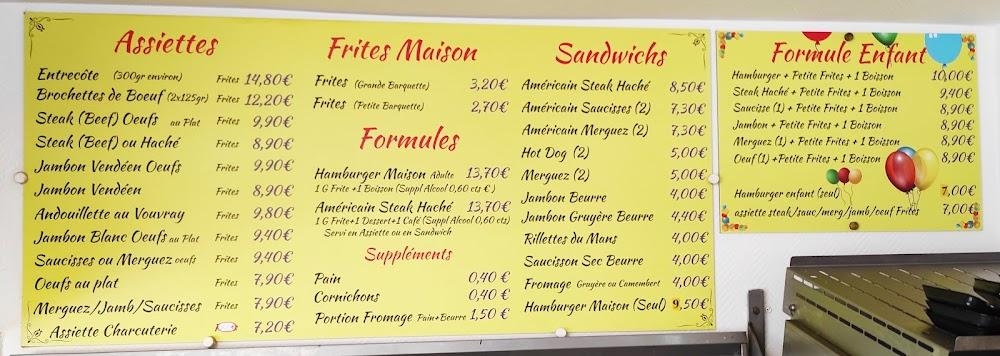 Assiettes
Entrecôte (300gr environ) Frites 14,80€
Brochettes de Boeuf (2x125gr) Frites 12,20€
Steak (Beef) Oeufs au Plat Frites 9,90€
Steak (Beef) ou Haché Frites 8,90€
Jambon Vendéen Oeufs Frites 9,90€
Jambon Vendéen Frites 8,90€
Andouillette au Vouvray Frites 9,80€
Jambon Blanc Oeufs au Plat Frites 9,40€
Saucisses ou Merguez oeufs Frites 9,40€
Oeufs au plat Frites 7,90€
Merguez/Jamb/Saucisses Frites 7,90€
Assiette Charcuterie 7,20€
Frites Maison
Frites (Grande Barquette) 3,20€
Frites (Petite Barquette) 2,70€
Formules
Hamburger Maison Adulte 13,70€
1 G Frite+1 Boisson (Suppl Alcool 0,60 cts €)
Américain Steak Haché 13,70€
1 G Frite+1 Dessert+1 Café (Suppl Alcool 0,60 cts)
Servi en Assiette ou en Sandwich
Suppléments
Pain 0,40 €
Cornichons 0,40 €
Portion Fromage Pain+Beurre 1,50 €
Sandwichs
Américain Steak Haché 8,50€
Américain Saucisses (2) 7,30€
Américain Merguez (2) 7,30€
Hot Dog (2) 5,00€
Merguez (2) 5,00€
Jambon Beurre 4,00€
Jambon Gruyère Beurre 4,40€
Rillettes du Mans 4,00€
Saucisson Sec Beurre 4,00€
Fromage Gruyère ou Camembert 4,00€
Hamburger Maison (Seul) 9,50€
Formule Enfant
Hamburger + Petite Frites + 1 Boisson 10,00€
Steak Haché + Petite Frites + 1 Boisson 9,40€
Saucisse (1) + Petite Frites + 1 Boisson 8,90€
Jambon + Petite Frites + 1 Boisson 8,90€
Merguez (1) + Petite Frites + 1 Boisson 8,90€
Oeuf (1) +Petite Frites + 1 Boisson 8,90€
Hamburger enfant (seul) 7,00€
assiette steak/sauc/merg/jamb/oeuf Frites 7,00€